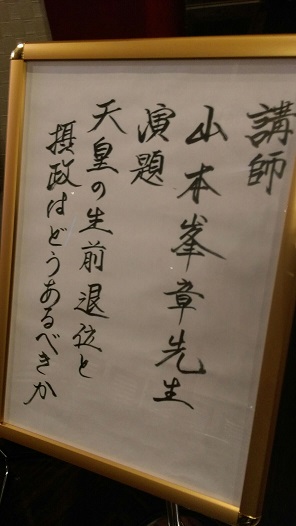 講師
山本峯章先生
演題
天皇の生前退位と
摂政はどうあるべきか